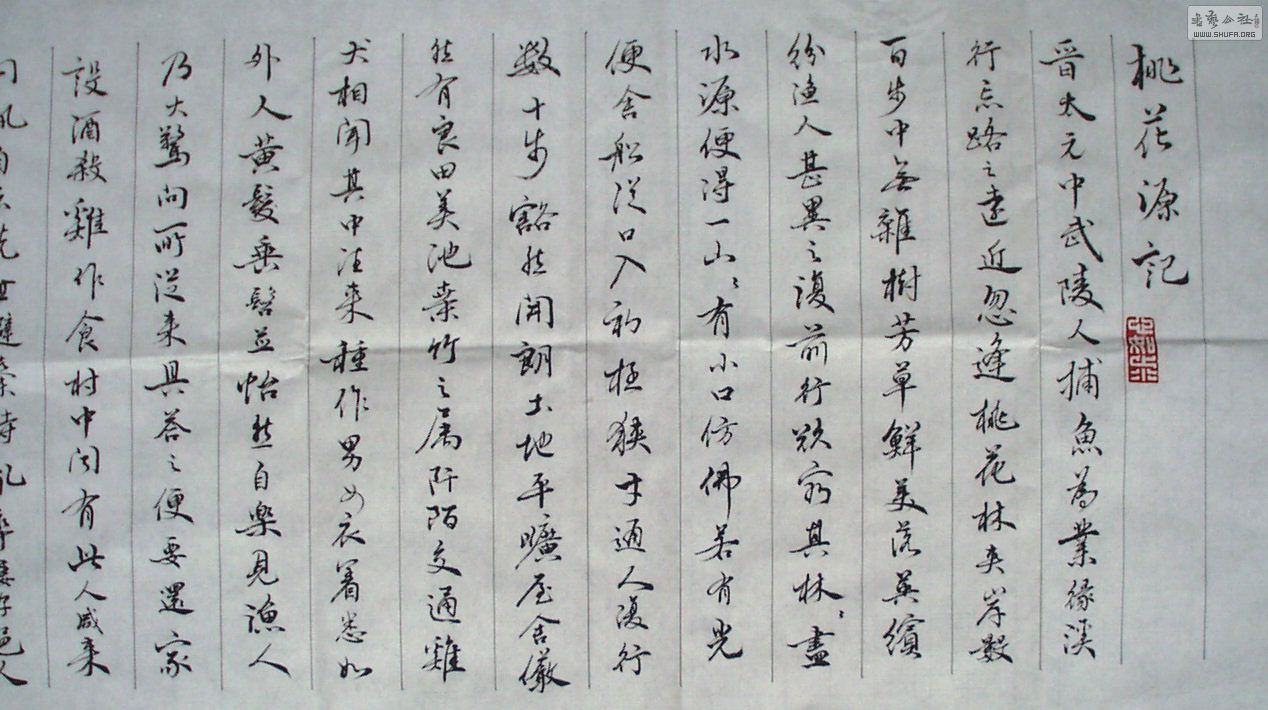 桃花源記
晋太元中武陵人捕魚為業緣溪
行忘路之遠近忽逢桃花林夾岸數
百步中無雜樹芳草鮮美落英繽
紛漁人甚異之復前行欲窮其林〻盡
水源便得一山〻有小口仿佛若有光
便舍船從口入初極狹才通人復行
数十步豁然開朗土地平曠屋舍儼
然有良田美池桑竹之属阡陌交通雞
犬相聞其中往来種作男女衣著悉如
外人黄髮垂髫並怡然自樂見漁人
乃大驚問所從来具答之便要還家
設酒殺雞作食村中聞有此人咸来
問訊自云先世避秦時亂率妻子邑人
書藝公社
WWW.SHUFA.ORG